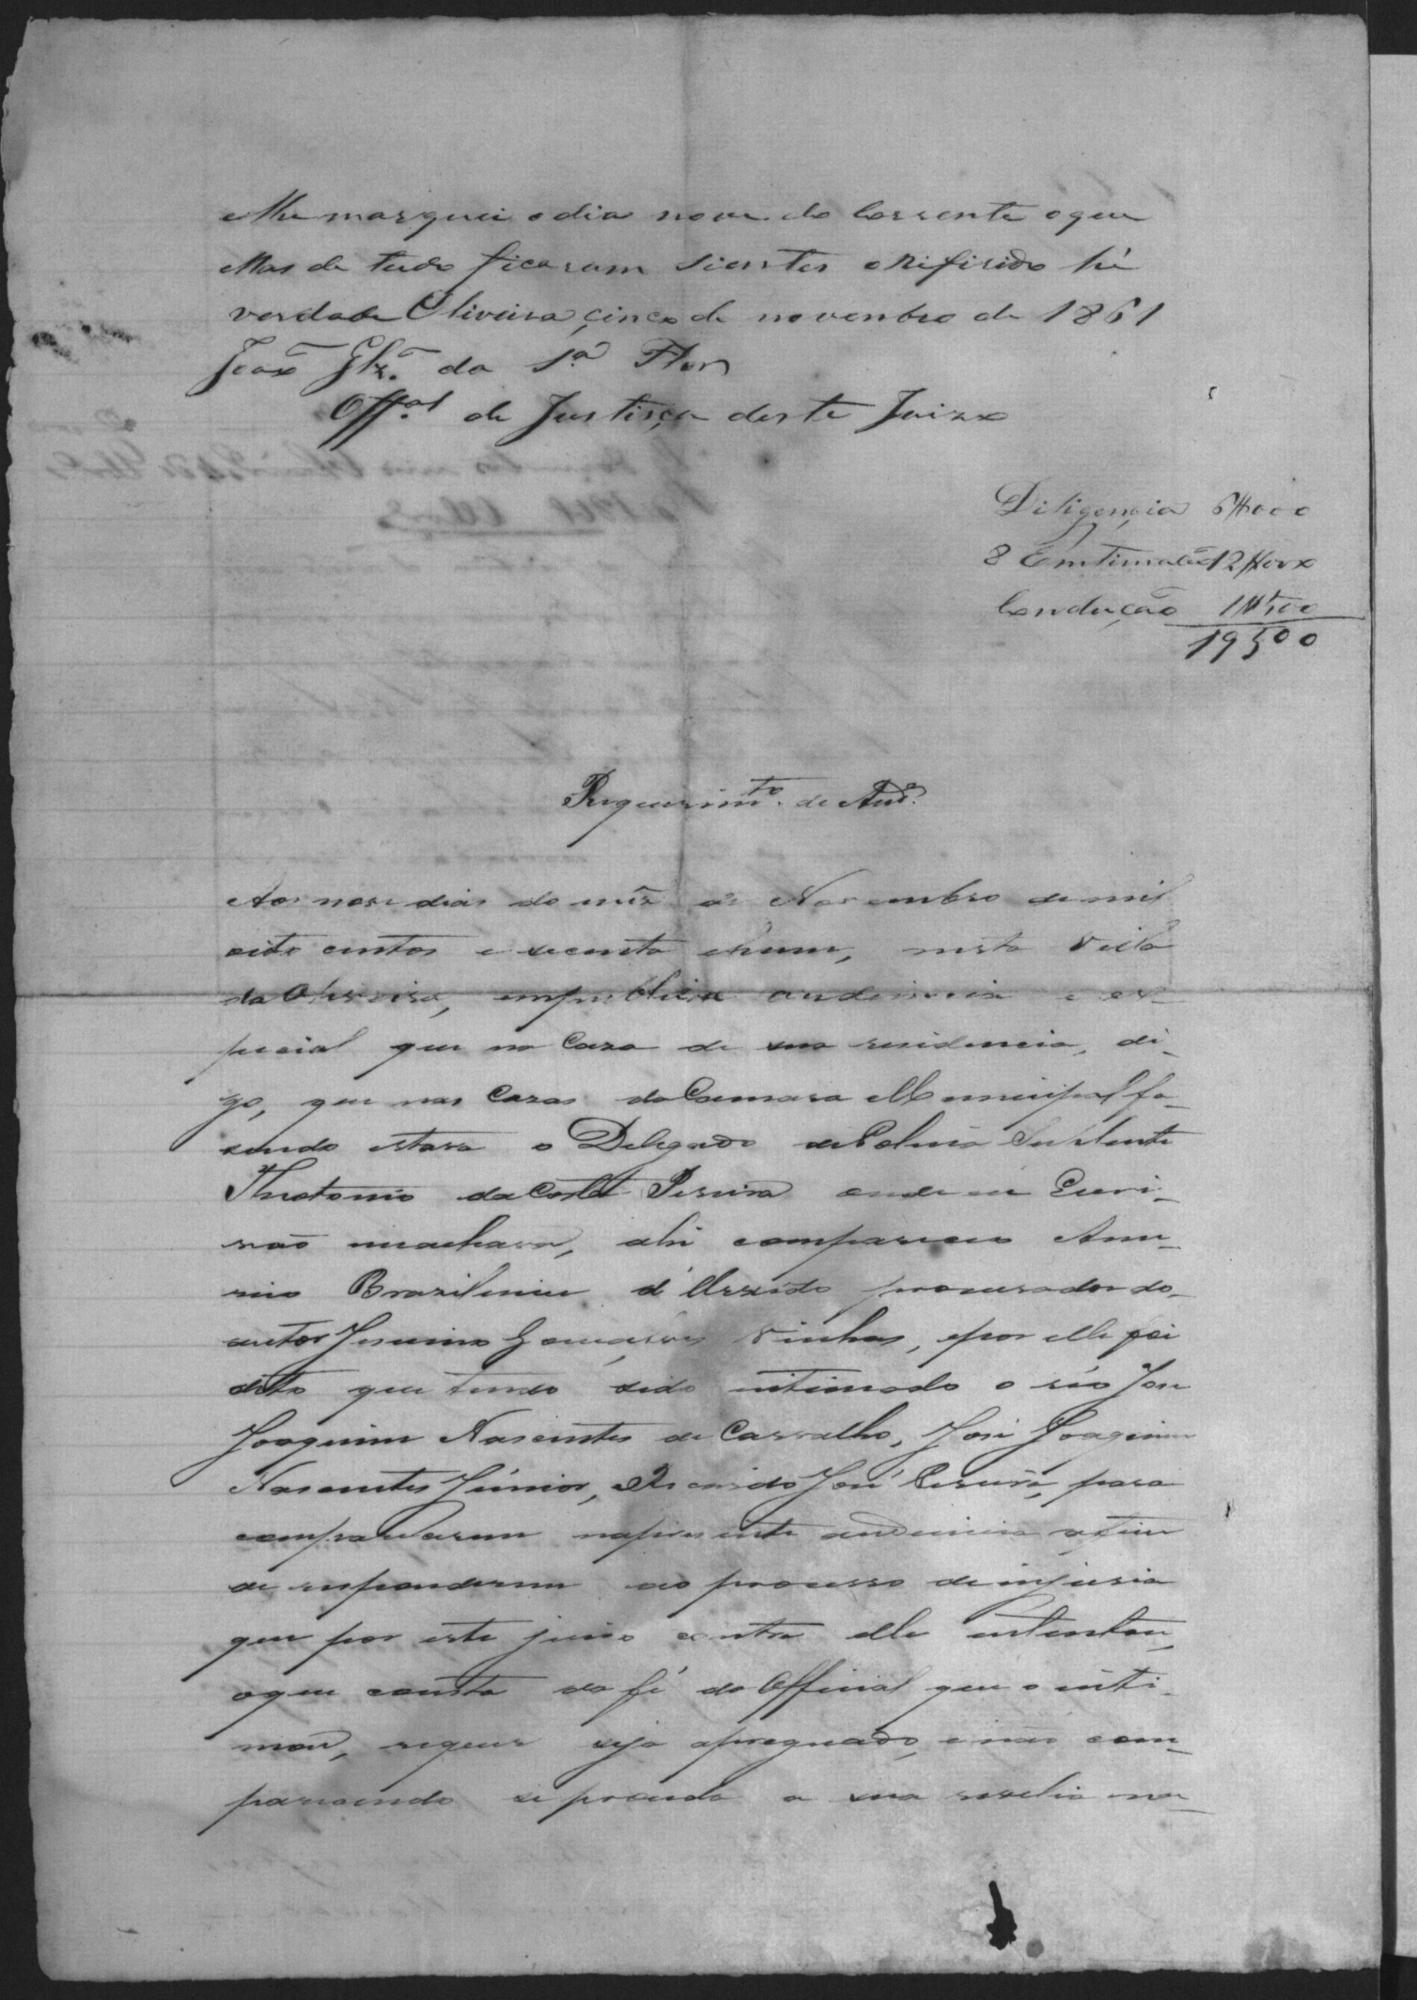 lhe marquei odia nove do Corrente oque
ellas de tudo ficaram sientes o Rifirido hé
verdade Oliveira, cinco de novenbro de 1861
João Glz.^ da S.ª Flor
Off.al de Justisça deste Juizo
Diligençia 6#000
8 Emtimações 12#000
Condução 1#500
19500
Requerim.to de Aud.ª
Aos nove dias do mês de Novembro de mil
oito centos e secenta ehum, nesta Villa
da Oliveira, empublica audiencia e es-
pecial que na Caza de sua residencia, di-
go, que nas Cazas da Camara Municipal fa-
sendo estava o Delegado de Policia Suplente
Theotonio da Costa Pereira onde eu Escri-
vão meachava, ahi compareceo
Braziliense d' procurador do
autor Gonçalves Vinhas, epor elle foi
dito que tendo sido intimado o réo José
Joaquim Nascentes de Carvalho, José Joaquim
Nascentes Júnior, e Ricardo José Pereira, para
comparecerem napresente audiencia afim
de responderem ao processo deinjuria
que por este juiso contra elle intentou,
oque consta da fé do Official que o inti-
mou, requer seja apregoado, enão com-
parecendo se proceda a sua revelia na-